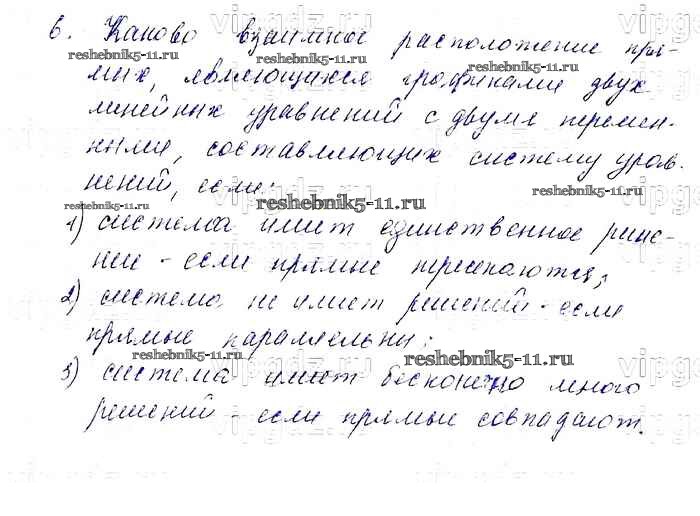 6. Каково взаимное расположение пря-
мых, являющихся графиками двух
линейных уравнений с двумя перемен-
ными, составляющих систему урав-
нений, если:
1) система имеет единственное реше-
ние - если прямые пересекаются;
2) система не имеет решений - если
прямые параллельны;
3) система имеет бесконечно много
решений - если прямые совпадают.
reshebnik5-11.ru
reshebnik5-11.ru
reshebnik5-11.ru
reshebnik5-11.ru
reshebnik5-11.ru
reshebnik5-11.ru
reshebnik5-11.ru
reshebnik5-11.ru
reshebnik5-11.ru
vipgdz.ru